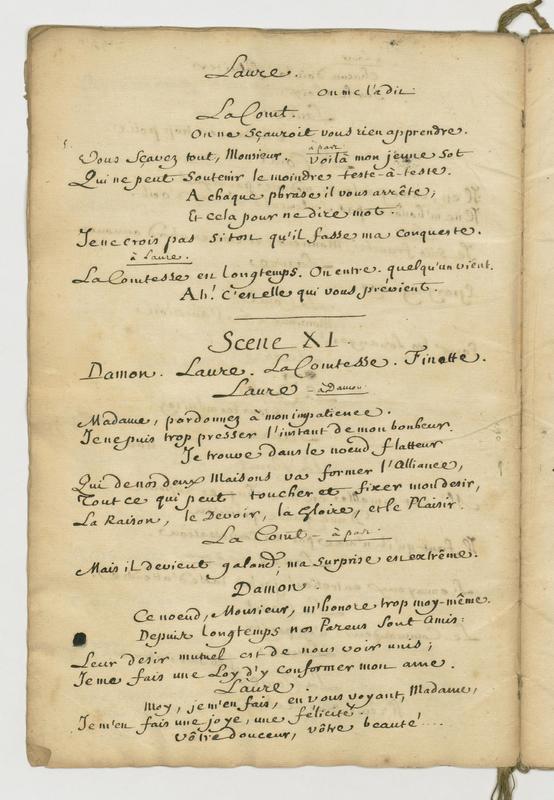 Laure.
On me l'a dit.
La Comt.
On ne sçauroit vous rien apprendre.
Vous sçavez tout, Monsieur. à part voilà mon jeune Sot
Qui ne peut soutenir le moindre teste-à-teste.
A chaque phrase il vous arrête;
Et cela pour ne dire mot.
Je ne crois pas sitost qu'il fasse ma conqueste.
à Laure.
La Comtesse en longtemps. On entre. quelqu'un vient.
Ah! c'est elle qui vous prévient.
Scene XI.
Damon. Laure. La Comtesse. Finette.
Laure - à Damon.
Madame, pardonnez à mon impatience.
Je ne puis trop presser l'instant de mon bonheur.
Je trouve dans le noeud flatteur
Qui de nos deux Maisons va former l'Alliance,
Tout ce qui peut toucher et fixer mon desir,
La Raison, le Devoir, la Gloire, et le Plaisir.
La Comt - à part.
Mais il devient galand, ma surprise est extrême.
Damon.
Ce noeud, Monsieur, m'honore trop moy-même.
Depuis longtemps nos Parens sont amis:
Leur desir mutuel est de nous voir unis;
Je me fais une Loy d'y conformer mon ame.
Laure.
Moy, je m'en fais, en vous voyant, Madame,
Je m'en fais une joye, une félicité.
vôtre douceur, vôtre beauté....